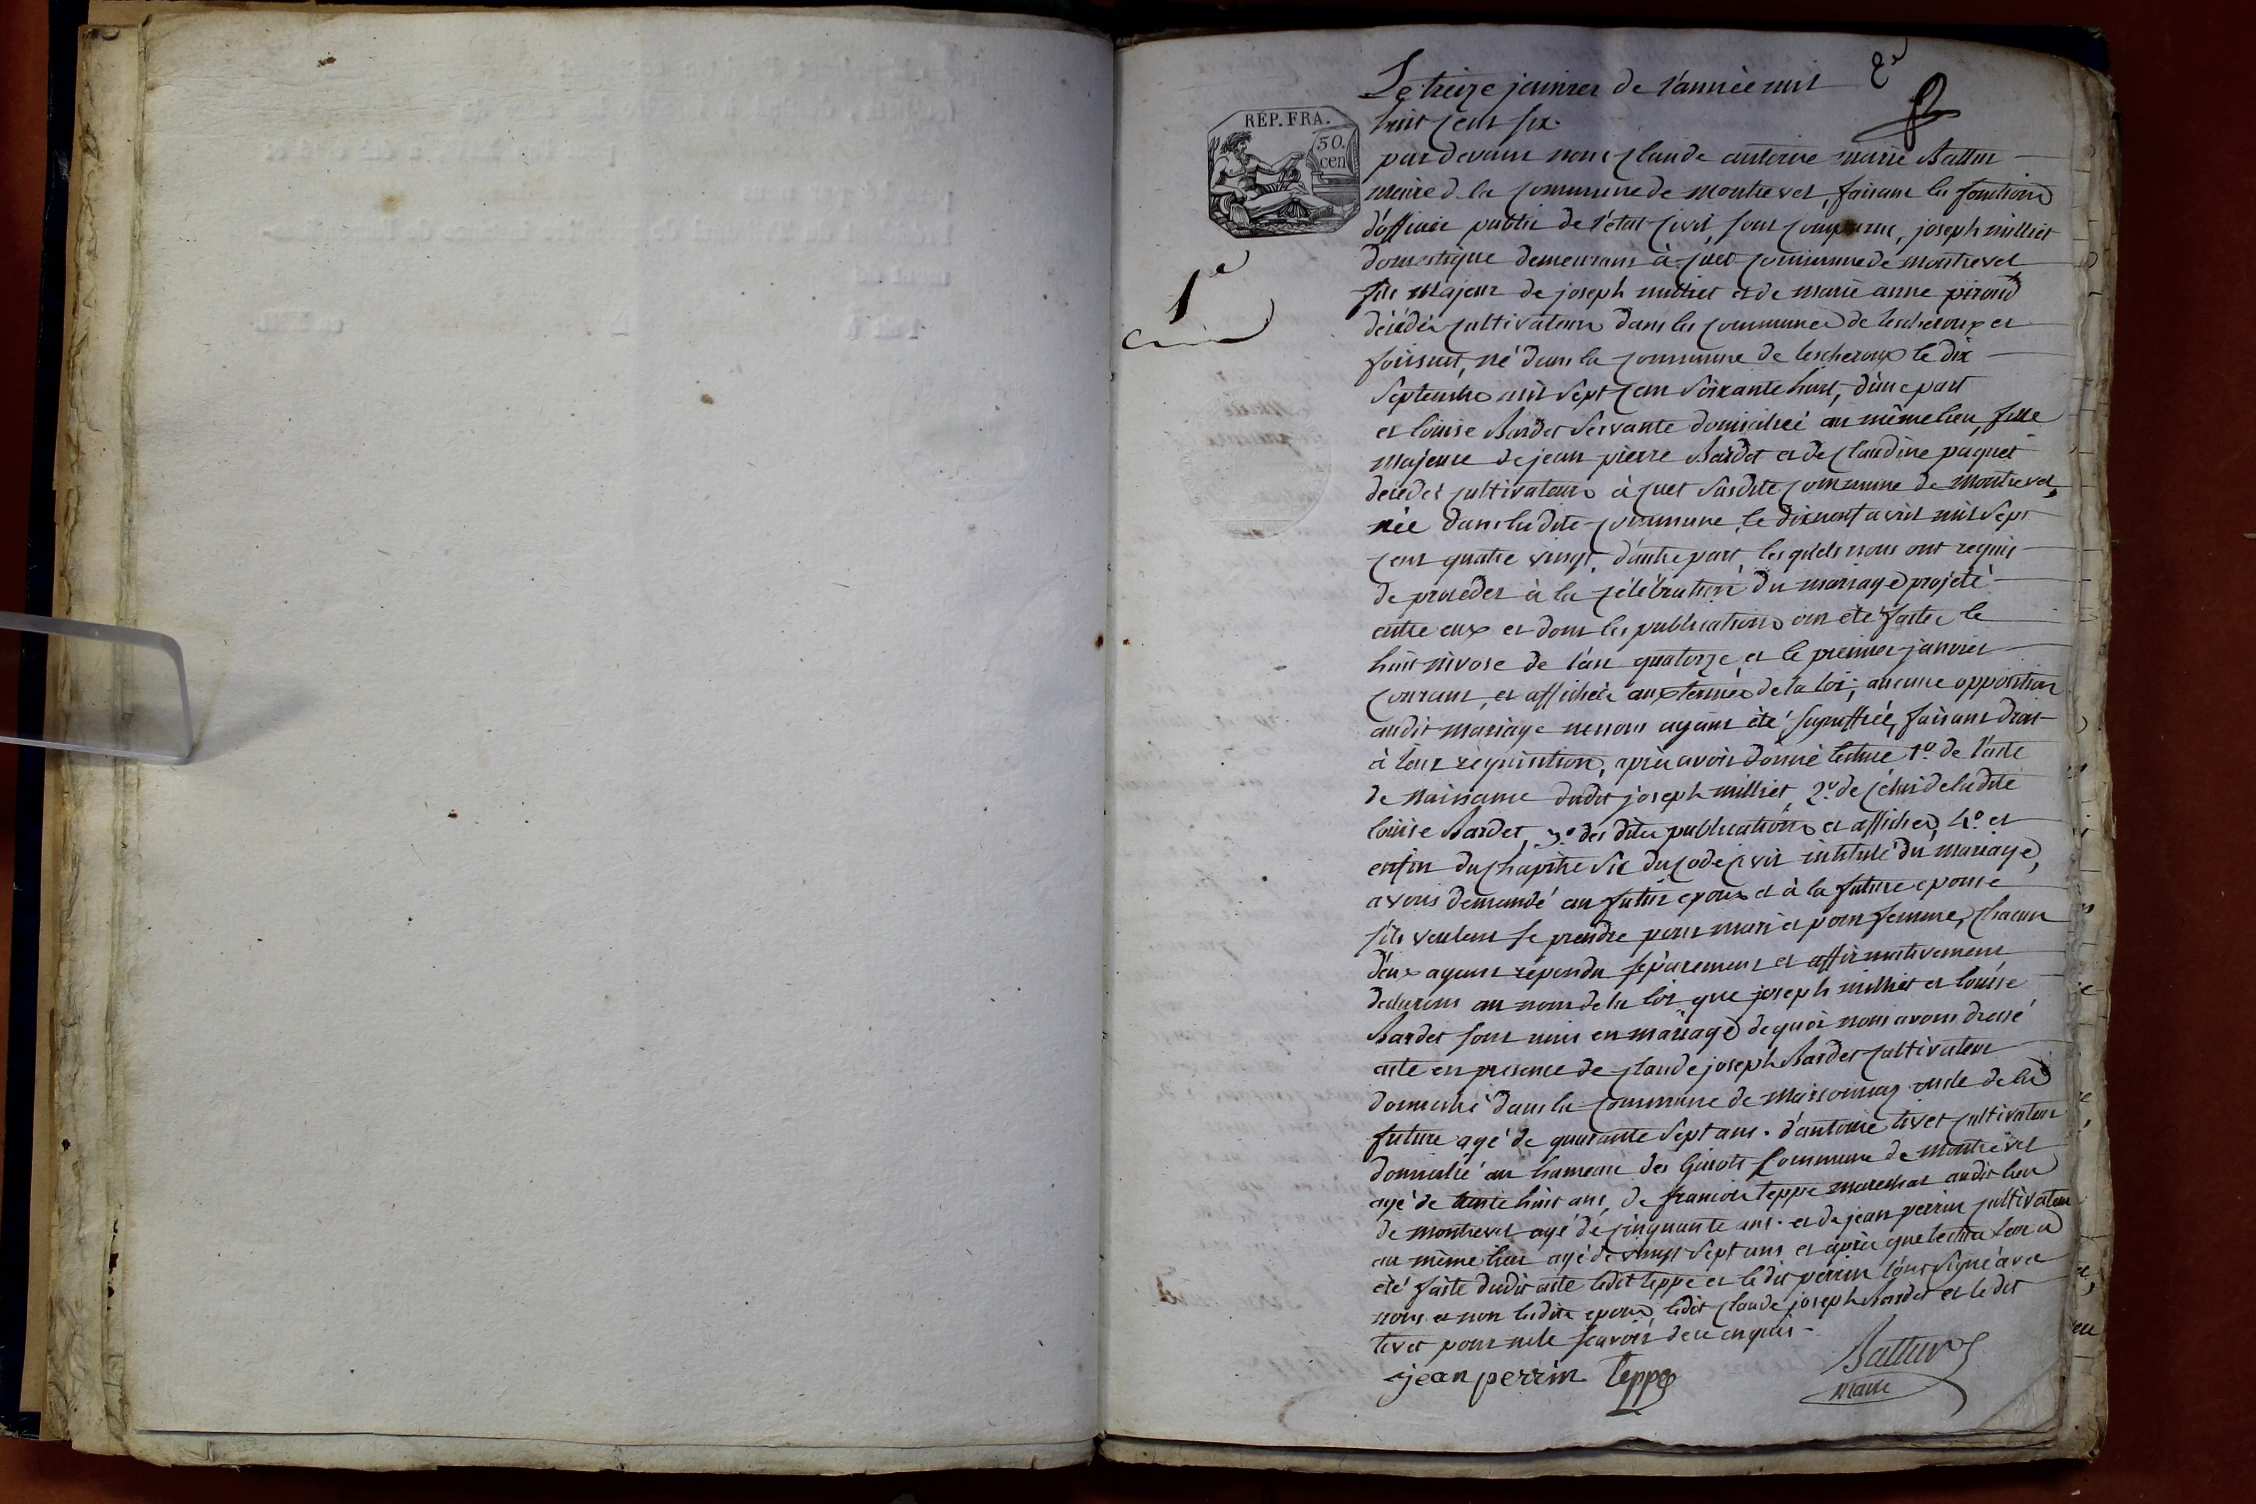 2e
Le treize janvier de l'année mil
REP. FRA.
50.
cen
huit cent six.
par devant nous claude antoine marie Battur
maire de la commune de montrevel, faisant les fonctions
d'officier public de l'état civil, sont comparus, joseph milliet
domestique demeurant à cuet commune de montrevel
1e
fils majeur de joseph milliet et de marie anne piroud
décédés cultivateurs dans les communes de lescheroux et
foissiat, né dans la commune de lescheroux le dix
septembre mil sept cent soixante huit, d'une part
et louise Bardet servante domiciliée au même lieu, fille
majeure de jean pierre Bardet et de claudine paquet
decedés cultivateurs à cuet susdite commune de montrevel,
née dans ladite commune, le dixneuf avril mil sept
cent quatre vingt, d'autre part, lesquels nous ont requis
de proceder à la célébration du mariage projeté
entre eux et dont les publications ont été faites le
huit nivose de l'an quatorze, et le premier janvier
courant, et affichées aux termes de la loi; aucune opposition
audit mariage ne nous ayant été signiffiée, faisant droit
à leur réquisition, après avoir donné lecture 1o. de l'acte
de naissance dudit joseph milliet, 2o. de celui de ladite
louise Bardet, 3o. des dites publications et affiches, 4o. et
enfin du chapitre six du code civil intitulé du mariage,
avons demandé au futur epoux et à la future epouse
s'ils veulent se prendre pour mari et pour femme, chacun
d'eux ayant répondu séparement et affirmativement
declarons au nom de la loi que joseph milliet et louise
Bardet sont unis en mariage de quoi nous avons dressé
acte en presence de claude joseph Bardet cultivateur
domicilié dans la commune de marsonnas oncle de la
future agé de quarante sept ans. d'antoine tivet cultivateur
domicilié au hameau des Girots commune de montrevel
agé de trente huit ans, de francois teppe marechal audit lieu
de montrevel agé de cinquante ans. et de jean perrin cultivateur
au même lieu agé de vingt sept ans et après que lecture leur a
été faite dudit acte ledit teppe et ledit perrin l'ont signé avec
nous et non lesdits epoux, ledit claude joseph Bardet et ledit
tivet pour ne le scavoir de ce enquis.
jean perrin teppe
Battur
maire